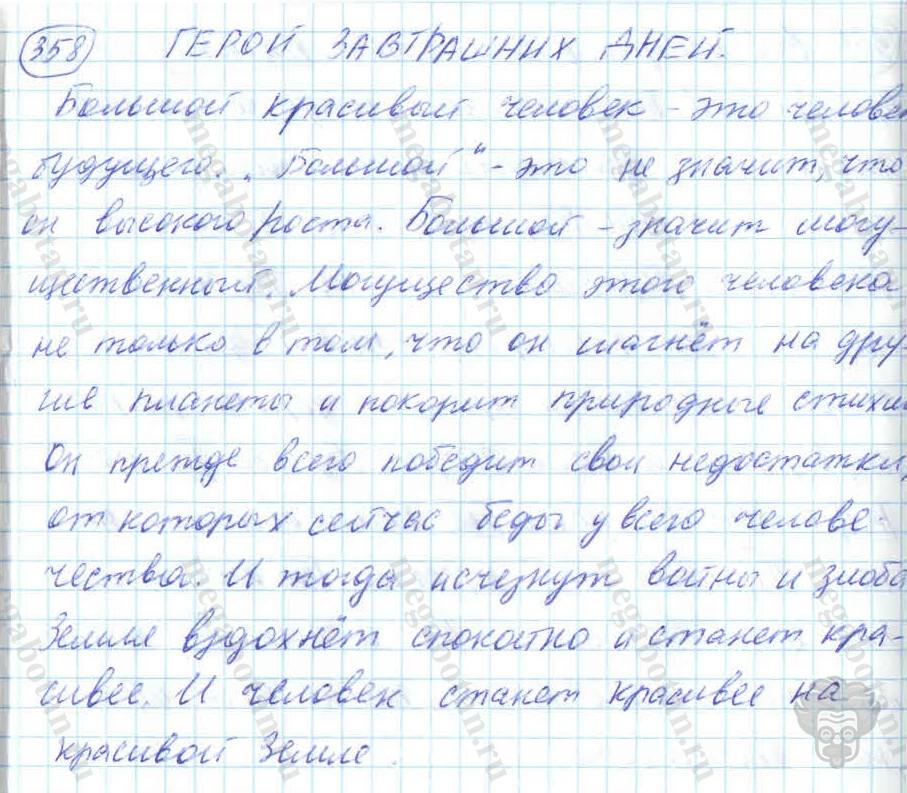 358 ГЕРОЙ ЗАВТРАШНИХ ДНЕЙ.
Большой красивый человек - это человек
будущего. „Большой“ - это не значит, что
он высокого роста. Большой - значит могу-
щественный. Могущество этого человека
не только в том, что он шагнёт на дру-
гие планеты и покорит природные стихии
Он прежде всего победит свои недостатки,
от которых сейчас беды у всего челове-
чества. И тогда исчезнут войны и злоба
Земля вздохнёт спокойно и станет кра-
сивее. И человек станет красивее на
красивой Земле.
megabotan.ru